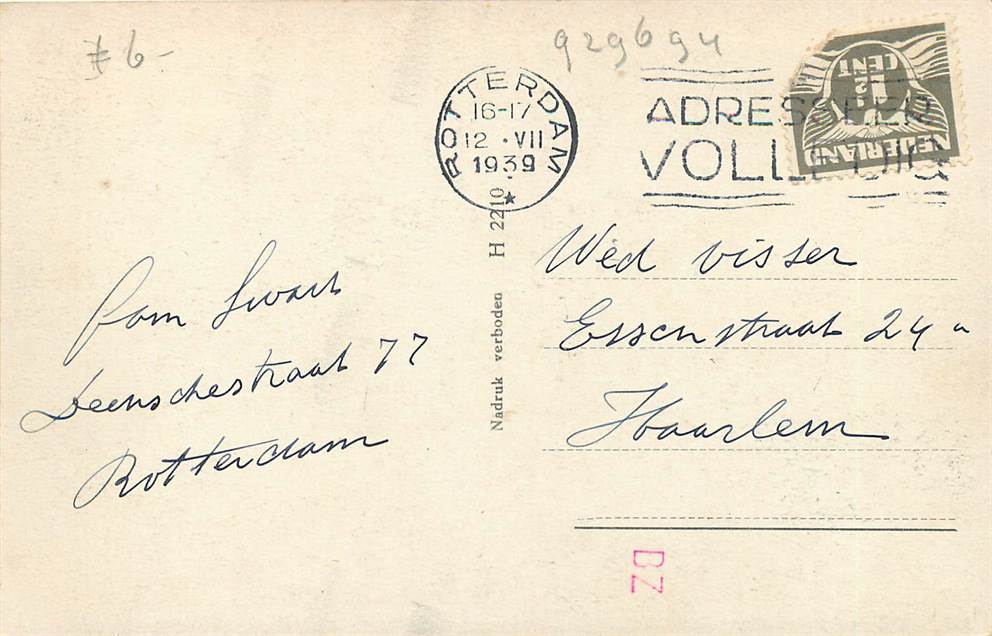 ƒ 6-
929694
ROTTERDAM
16-17
12 · VII
1939
ADRESSEER
VOLLEDIG
1½
CENT
NEDERLAND
H 2210
Nadruk verboden
Fam Swart
Deenschestraat 77
Rotterdam
Wed visser
Essenstraat 24 a
Haarlem
BZ